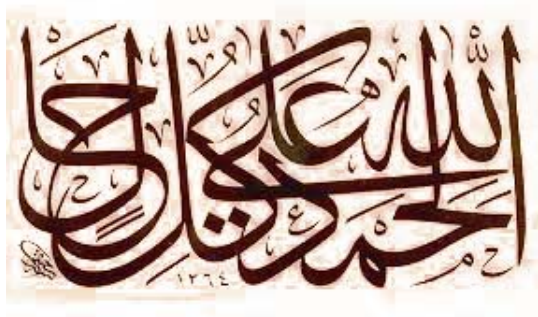 الحمد لله على كل حال
١٢٦٤